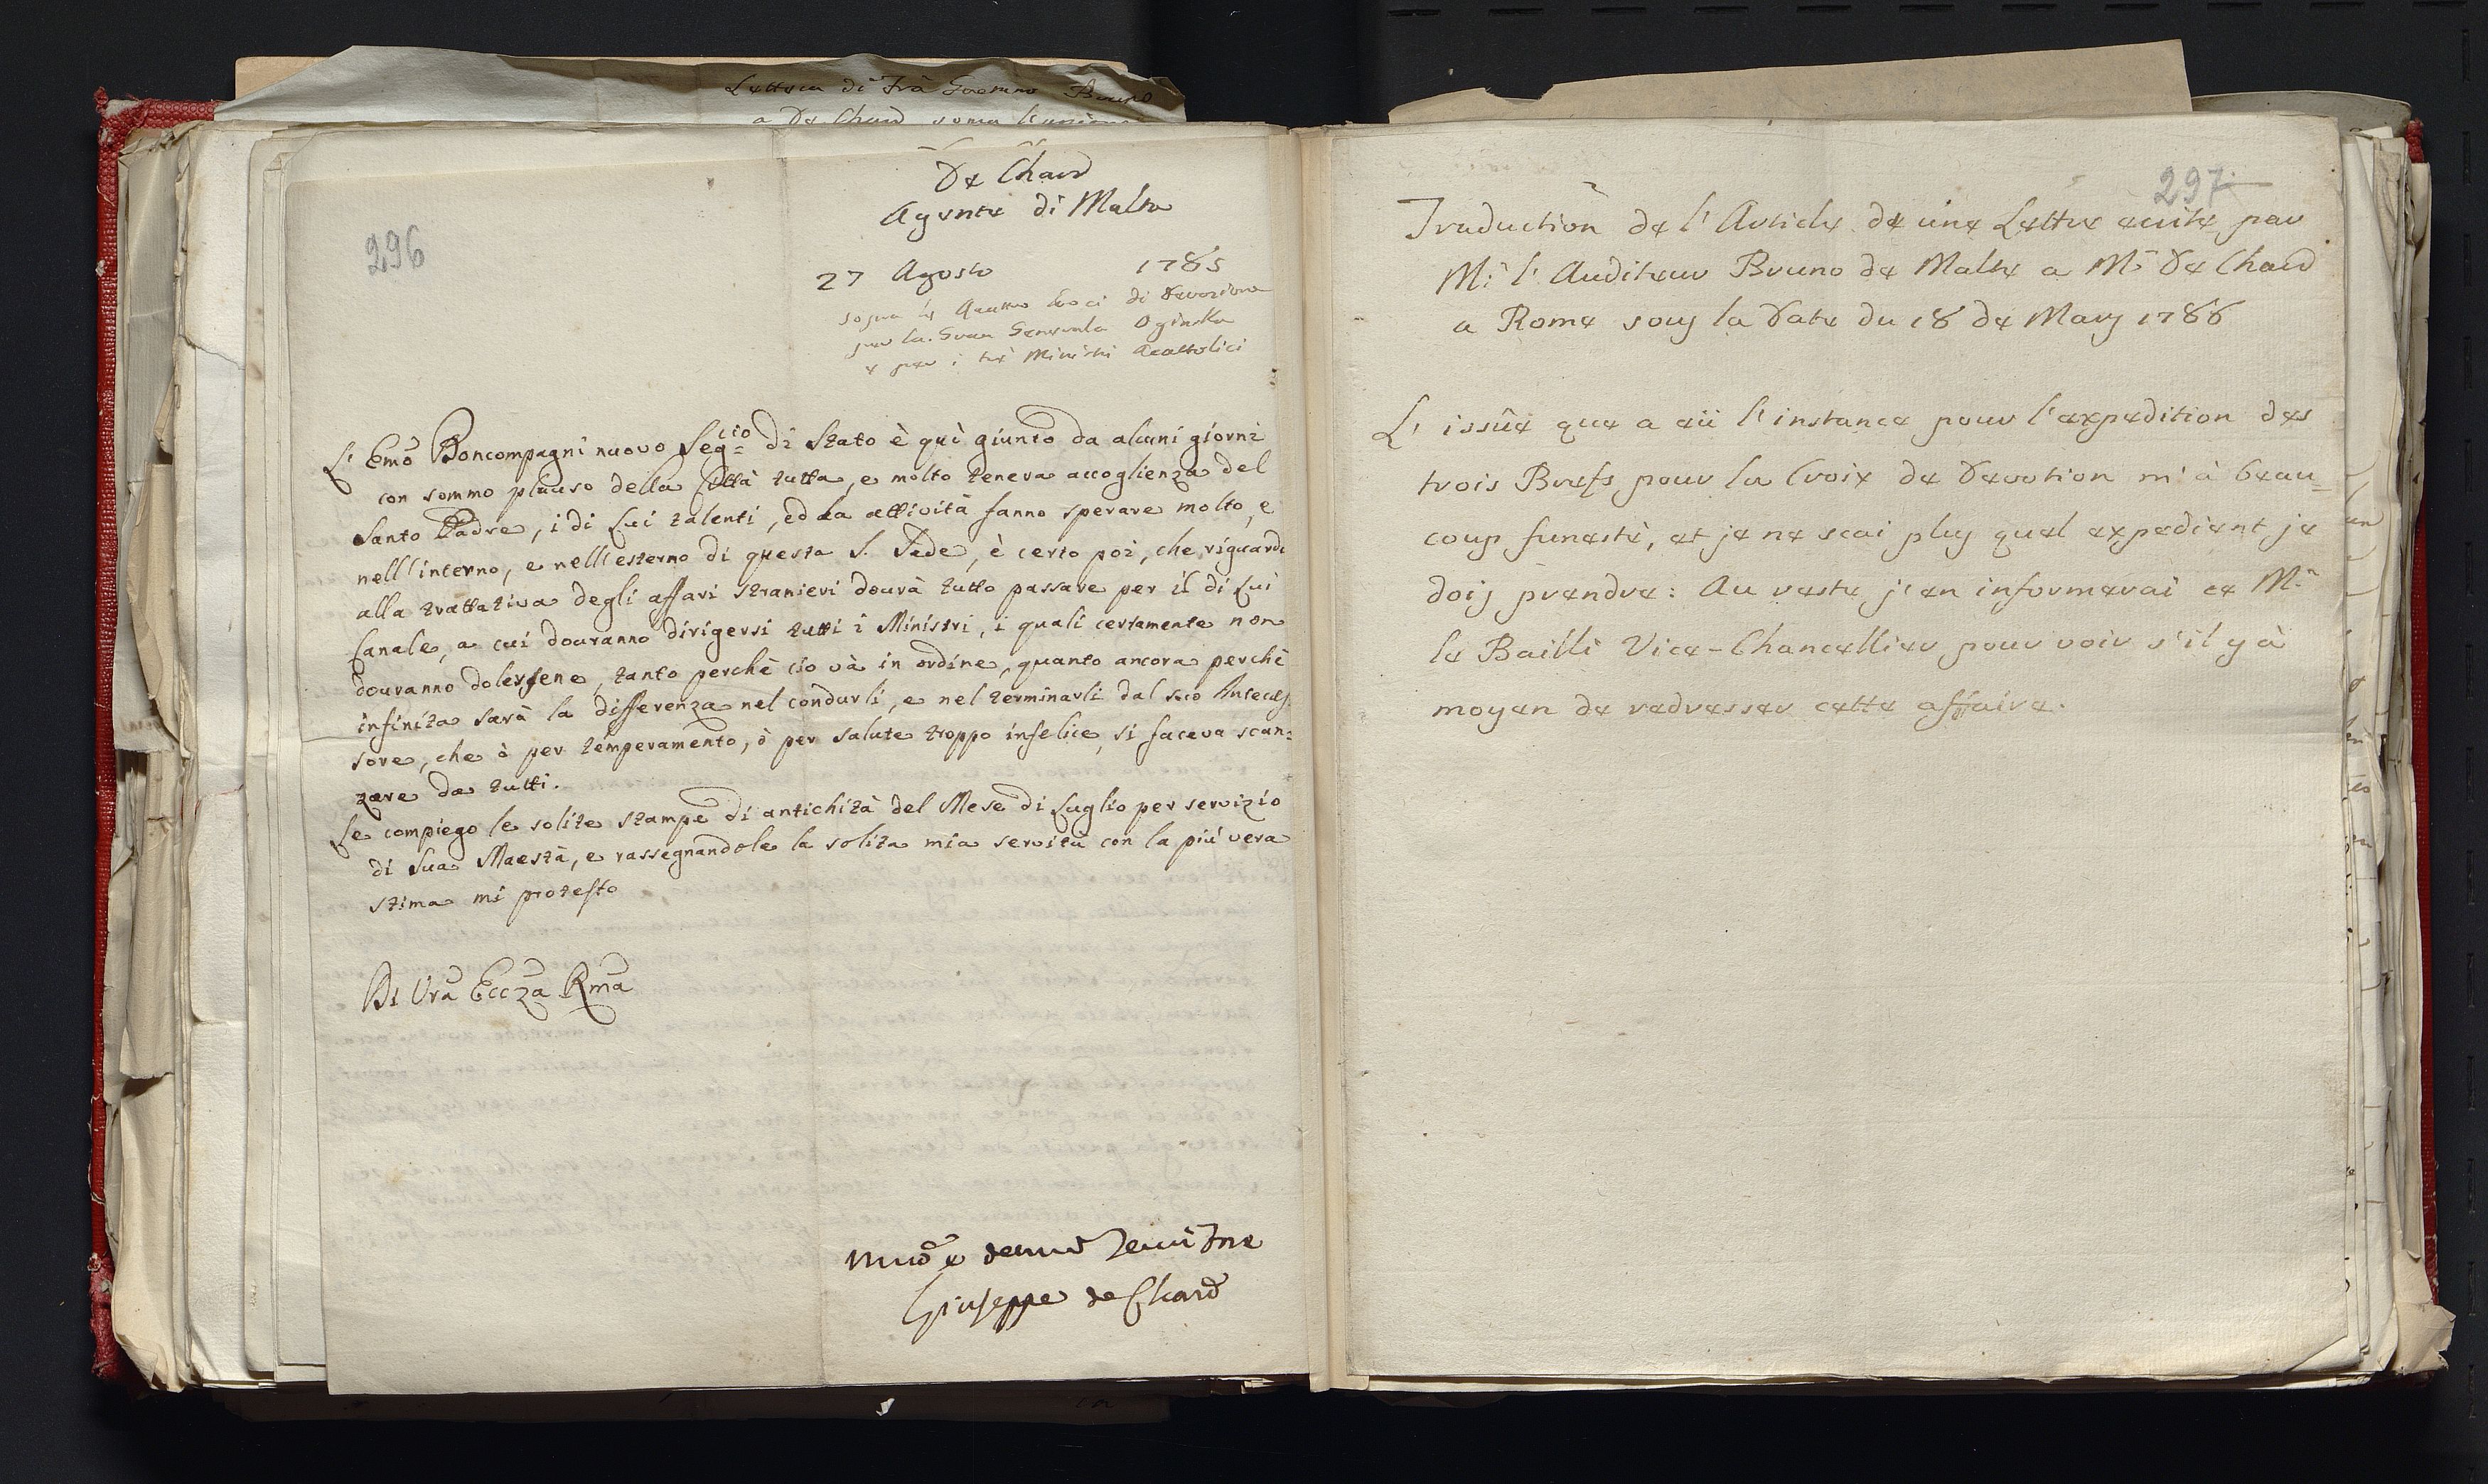 Lettera di Frà Gaetano Bruno
a De Chard
De Chard
Agente di Malta
296
27 Agosto 1785
sopra le quattro Croci di Devozione
per la Gran Generala Oginska
e per i trè Ministri Acattolici
L'Emo Boncompagni nuovo Segrio di Stato è quì giunto da alcuni giorni
con sommo plauso della Città tutta, e molto tenera accoglienza del
Santo Padre, i di lui talenti, ed la attività fanno sperare molto, e
nell'interno, e nell'esterno di questa S. Sede, è certo poi, che riguardo
alla trattativa degli affari stranieri dovrà tutto passare per il di lui
Canale, a cui dovranno dirigersi tutti i Ministri, i quali certamente non
dovranno dolersene, tanto perchè ciò và in ordine, quanto ancora perchè
infinita sarà la differenza nel condurli, e nel terminarli dal suo Anteces-
sore, che ò per temperamento, ò per salute troppo infelice, si faceva scan=
zare da tutti.
Le compiego le solite stampe di antichità del Mese di Luglio per servizio
di Sua Maestà, e rassegnandole la solita mia servitù con la più vera
stima mi protesto
Di Vra Eccza Rma
Giuseppe de Chard
297.
Traduction de l'Article de une Lettre ecrite par
Mr l'Auditeur Bruno de Malte a Mr De Chard
a Rome sous la Date du 18 de Mars 1786
L'issûe que a eü l'instance pour l'expedition des
trois Brefs pour la Croix de Devotion m'à beau=
coup funesté, et je ne scai plus quel expedient je
dois prendre: Au reste j'en informerai ce Mr
le Bailli Vice-Chancellier pour voir s'il y à
moyen de redresser cette affaire.